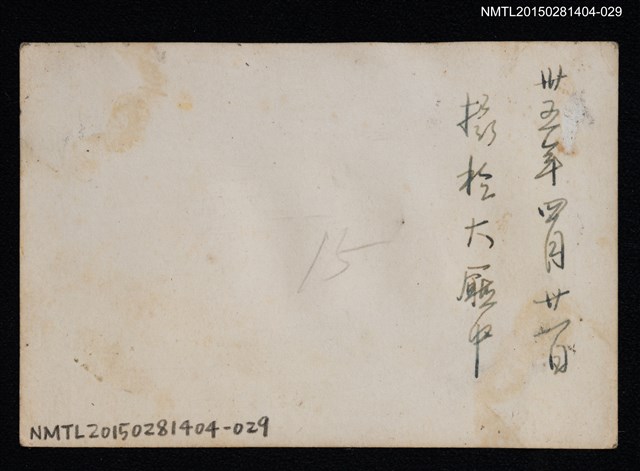 NMTL20150281404-029
卅五年四月廿一日
摄於大廳中
15
NMTL20150281404-029